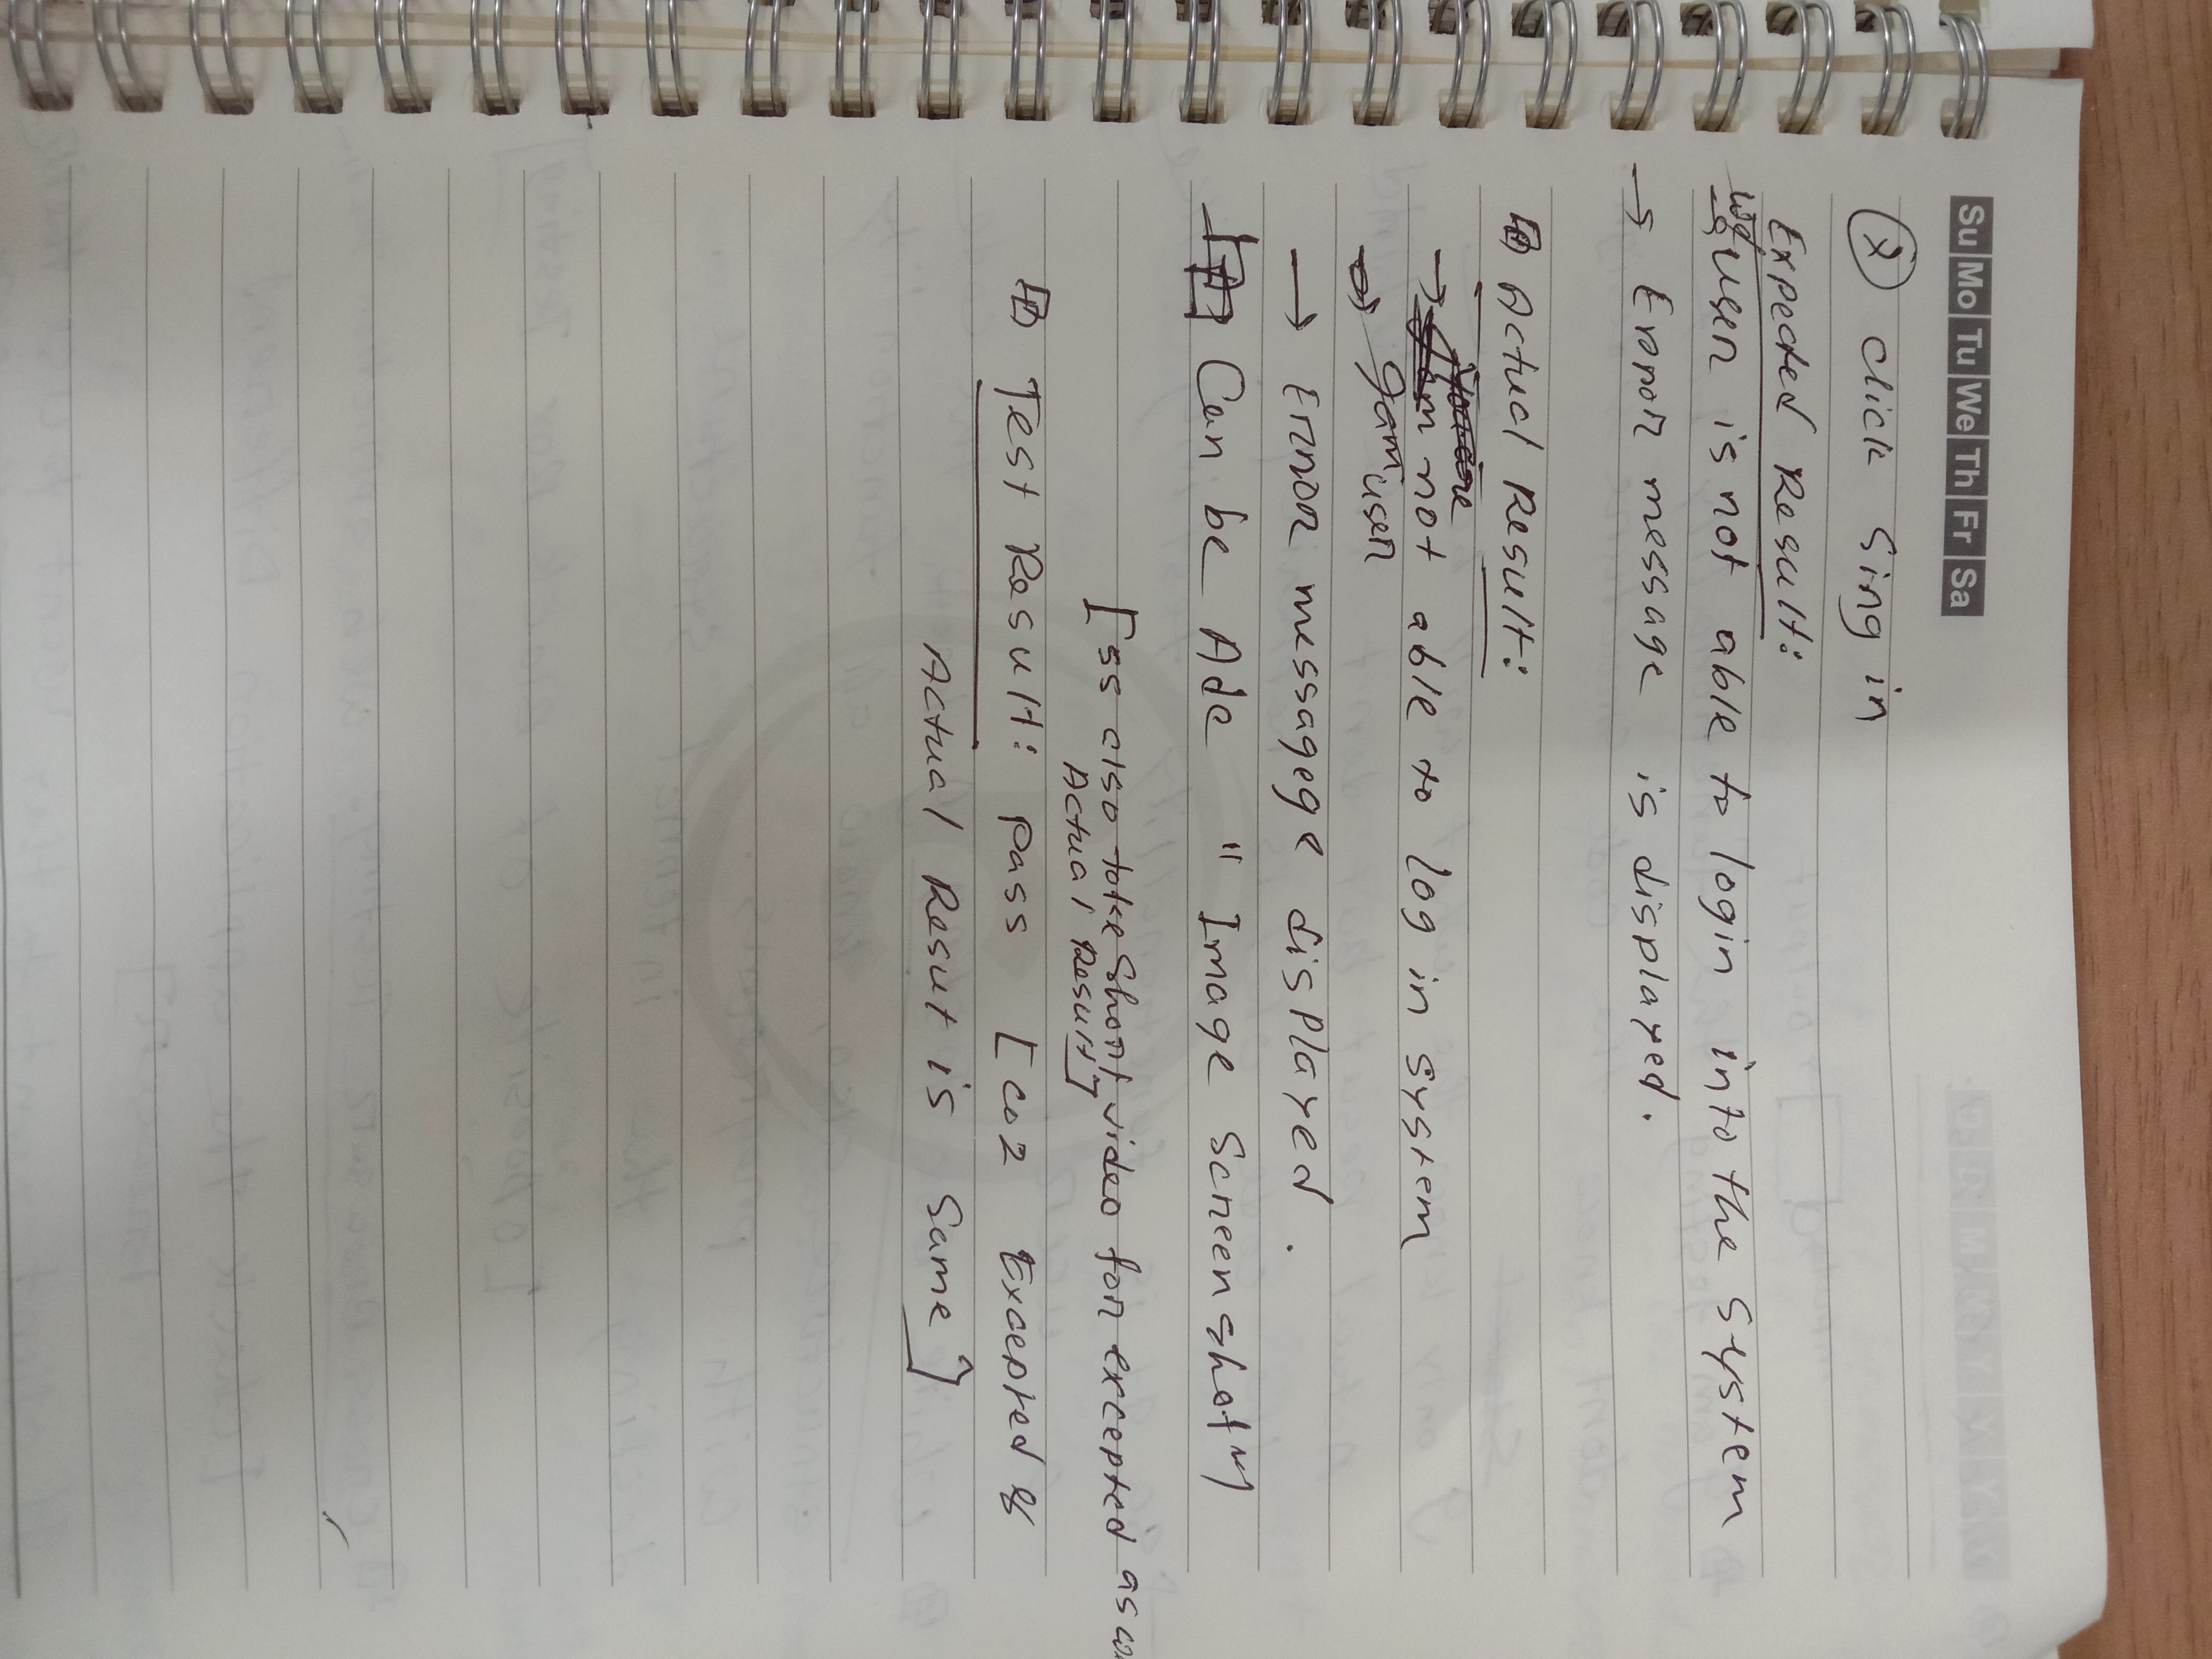 Su Mo Tu We Th Fr Sa
② click Sing in
Expected Result:
user is not able to login into the System
→ Error message is displayed.
Actual Result:
you are
→ I am not able to log in system
→ I am user
→ Error messagege displayed.
Can be Ade "Image Screenshot"
[ss also take Short video for excepted as
Actual Result]
Test Result: pass [coz Excepted &
Actual Resut is Same]